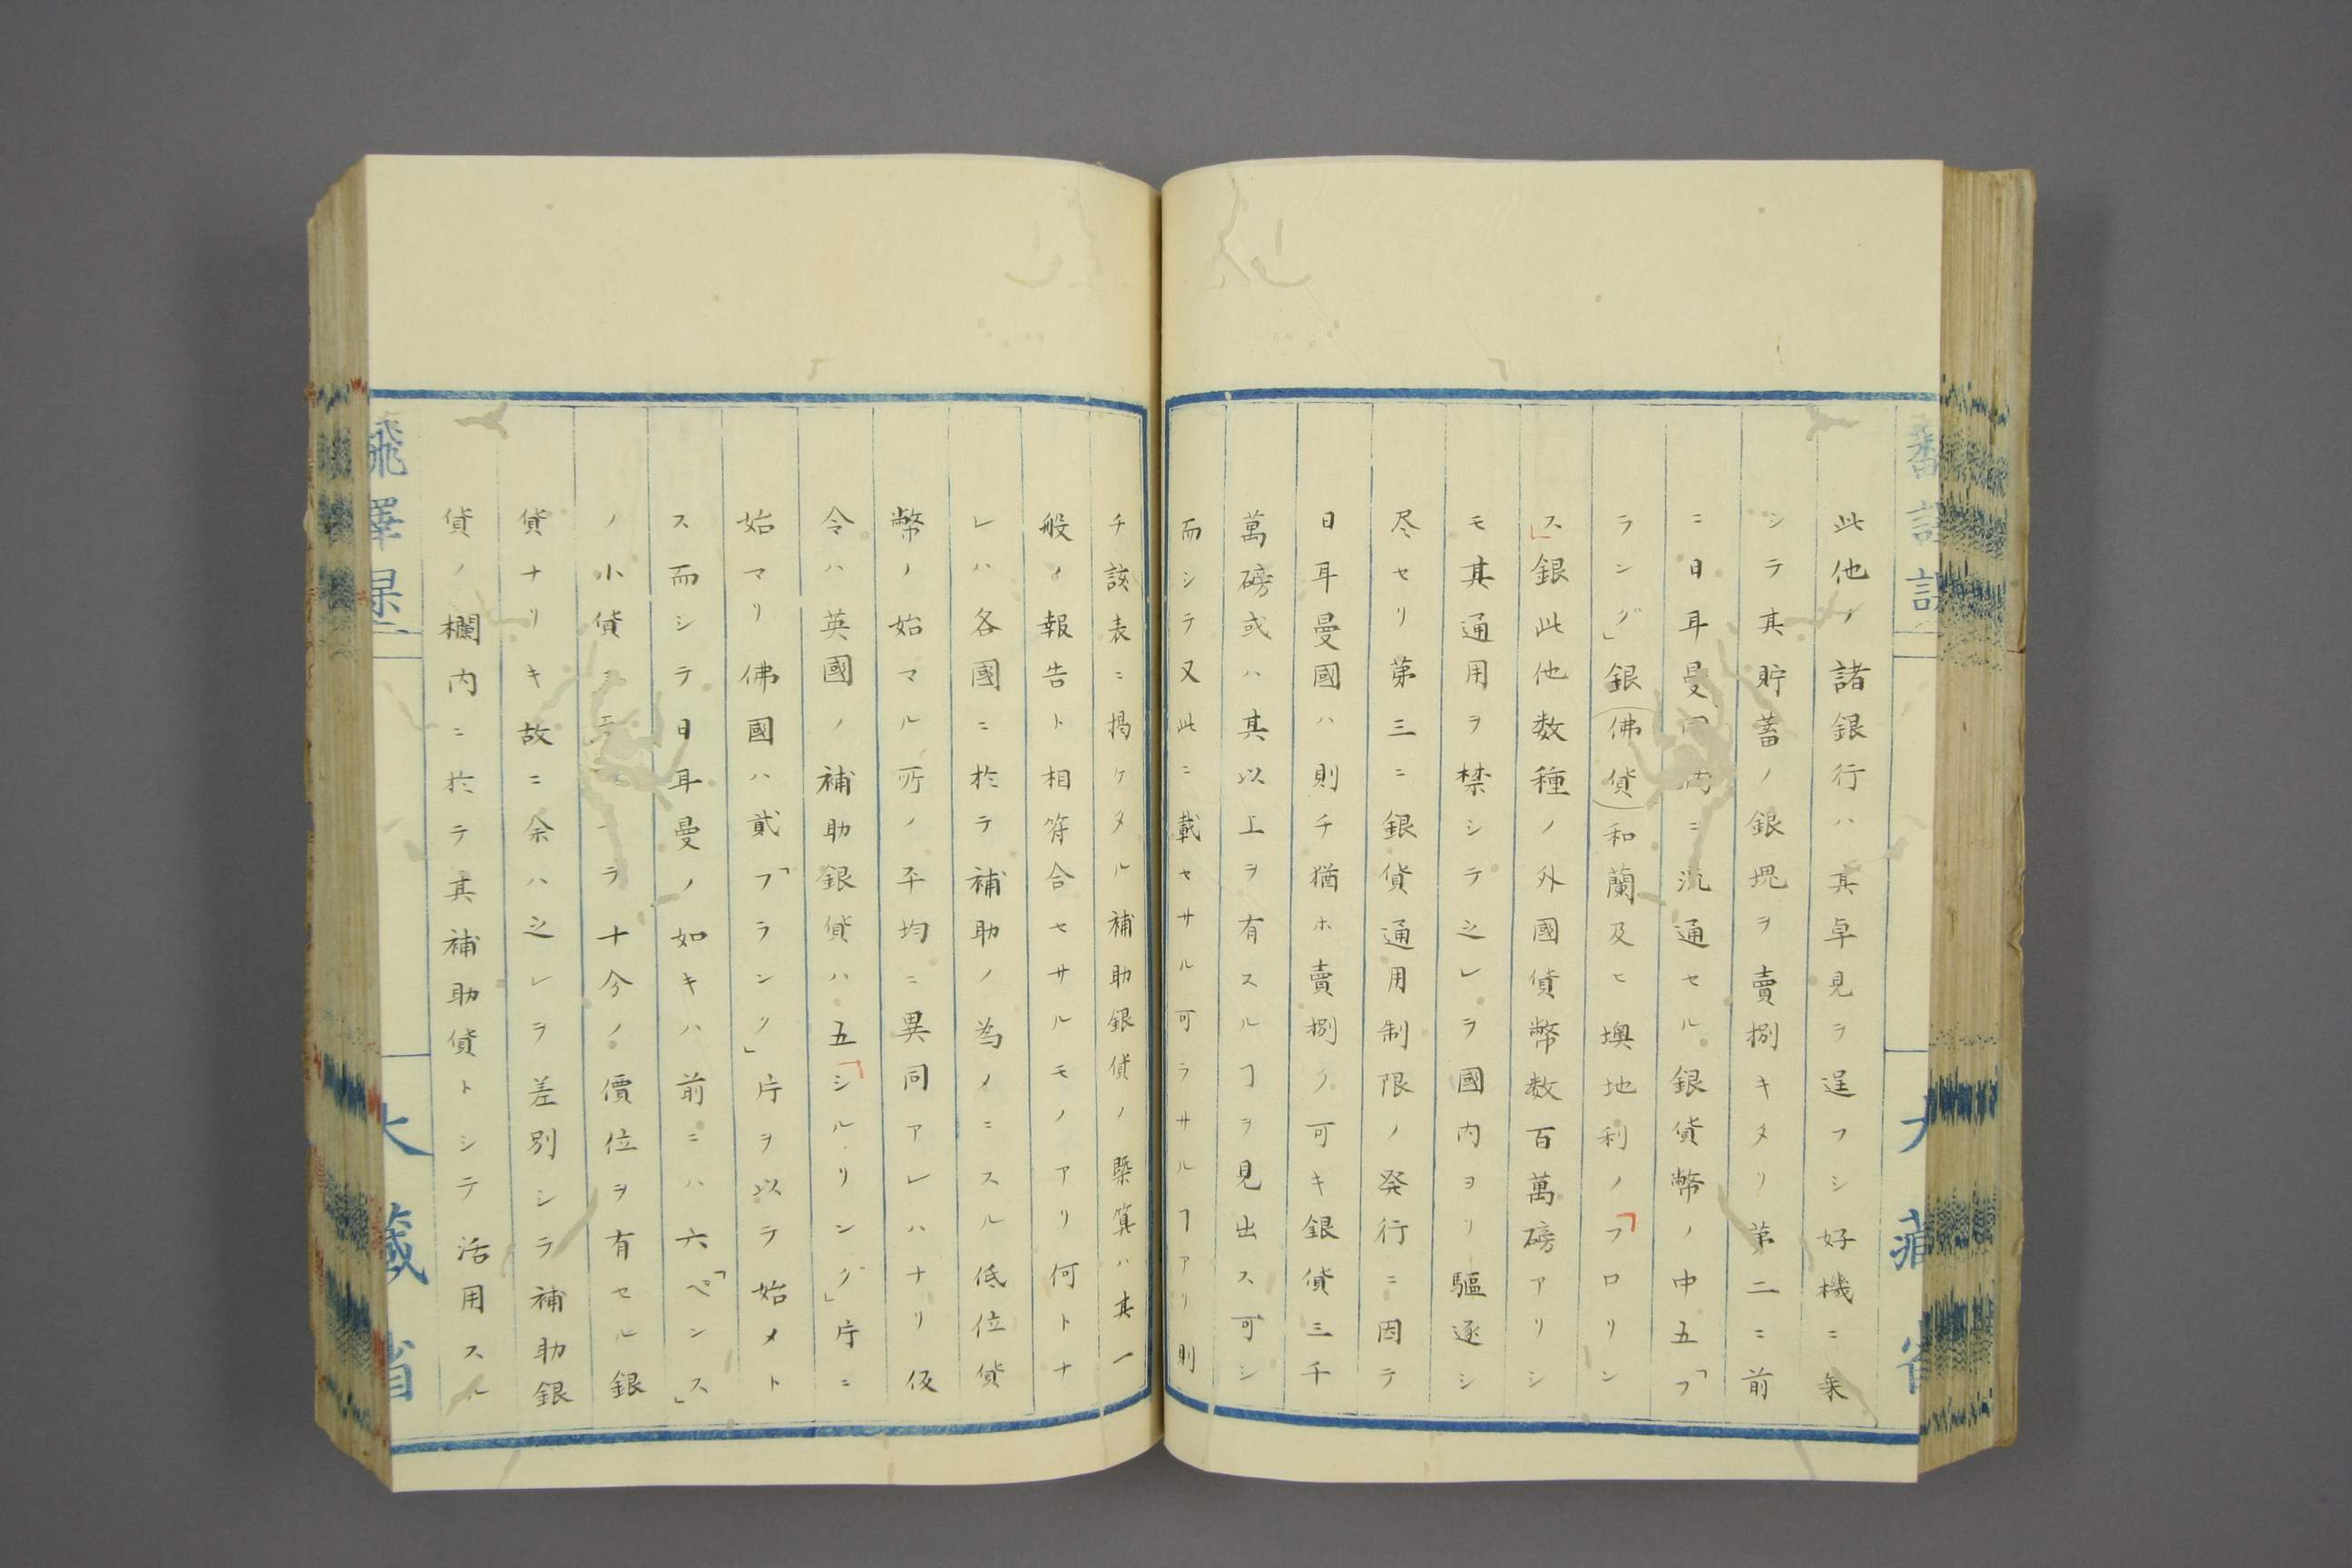 此他ノ諸銀行ハ其卓見ヲ逞フシ好機ニ乗
シテ其貯蓄ノ銀塊ヲ賣捌キタリ第二ニ前
ニ日耳曼國内ニ流通セル銀貨幣ノ中五「フ
ラング」銀(佛貨)和蘭及ヒ墺地利ノ「フロリン
ス」銀此他数種ノ外國貨幣数百萬磅アリシ
モ其通用ヲ禁シテ之レヲ國内ヨリ驅逐シ
尽セリ第三ニ銀貨通用制限ノ発行ニ因テ
日耳曼國ハ則チ猶ホ賣捌ク可キ銀貨三千
萬磅或ハ其以上ヲ有スルヿヲ見出ス可シ
而シテ又此ニ載セサル可ラサルヿアリ則
チ該表ニ掲ケタル補助銀貨ノ槩算ハ其一
般ノ報告ト相符合セサルモノアリ何トナ
レハ各國ニ於テ補助ノ為メニスル低位貨
幣ノ始マル所ノ平均ニ異同アレハナリ仮
令ハ英國ノ補助銀貨ハ五「シルリング」片ニ
始マリ佛國ハ貳「フランク」片ヲ以テ始メト
ス而シテ日耳曼ノ如キハ前ニハ六「ペンス」
ノ小貨
ラ十分ノ價位ヲ有セル銀
貨ナリキ故ニ余ハ之レヲ差別シテ補助銀
貨ノ欄内ニ於テ其補助貨トシテ活用スル
大藏省